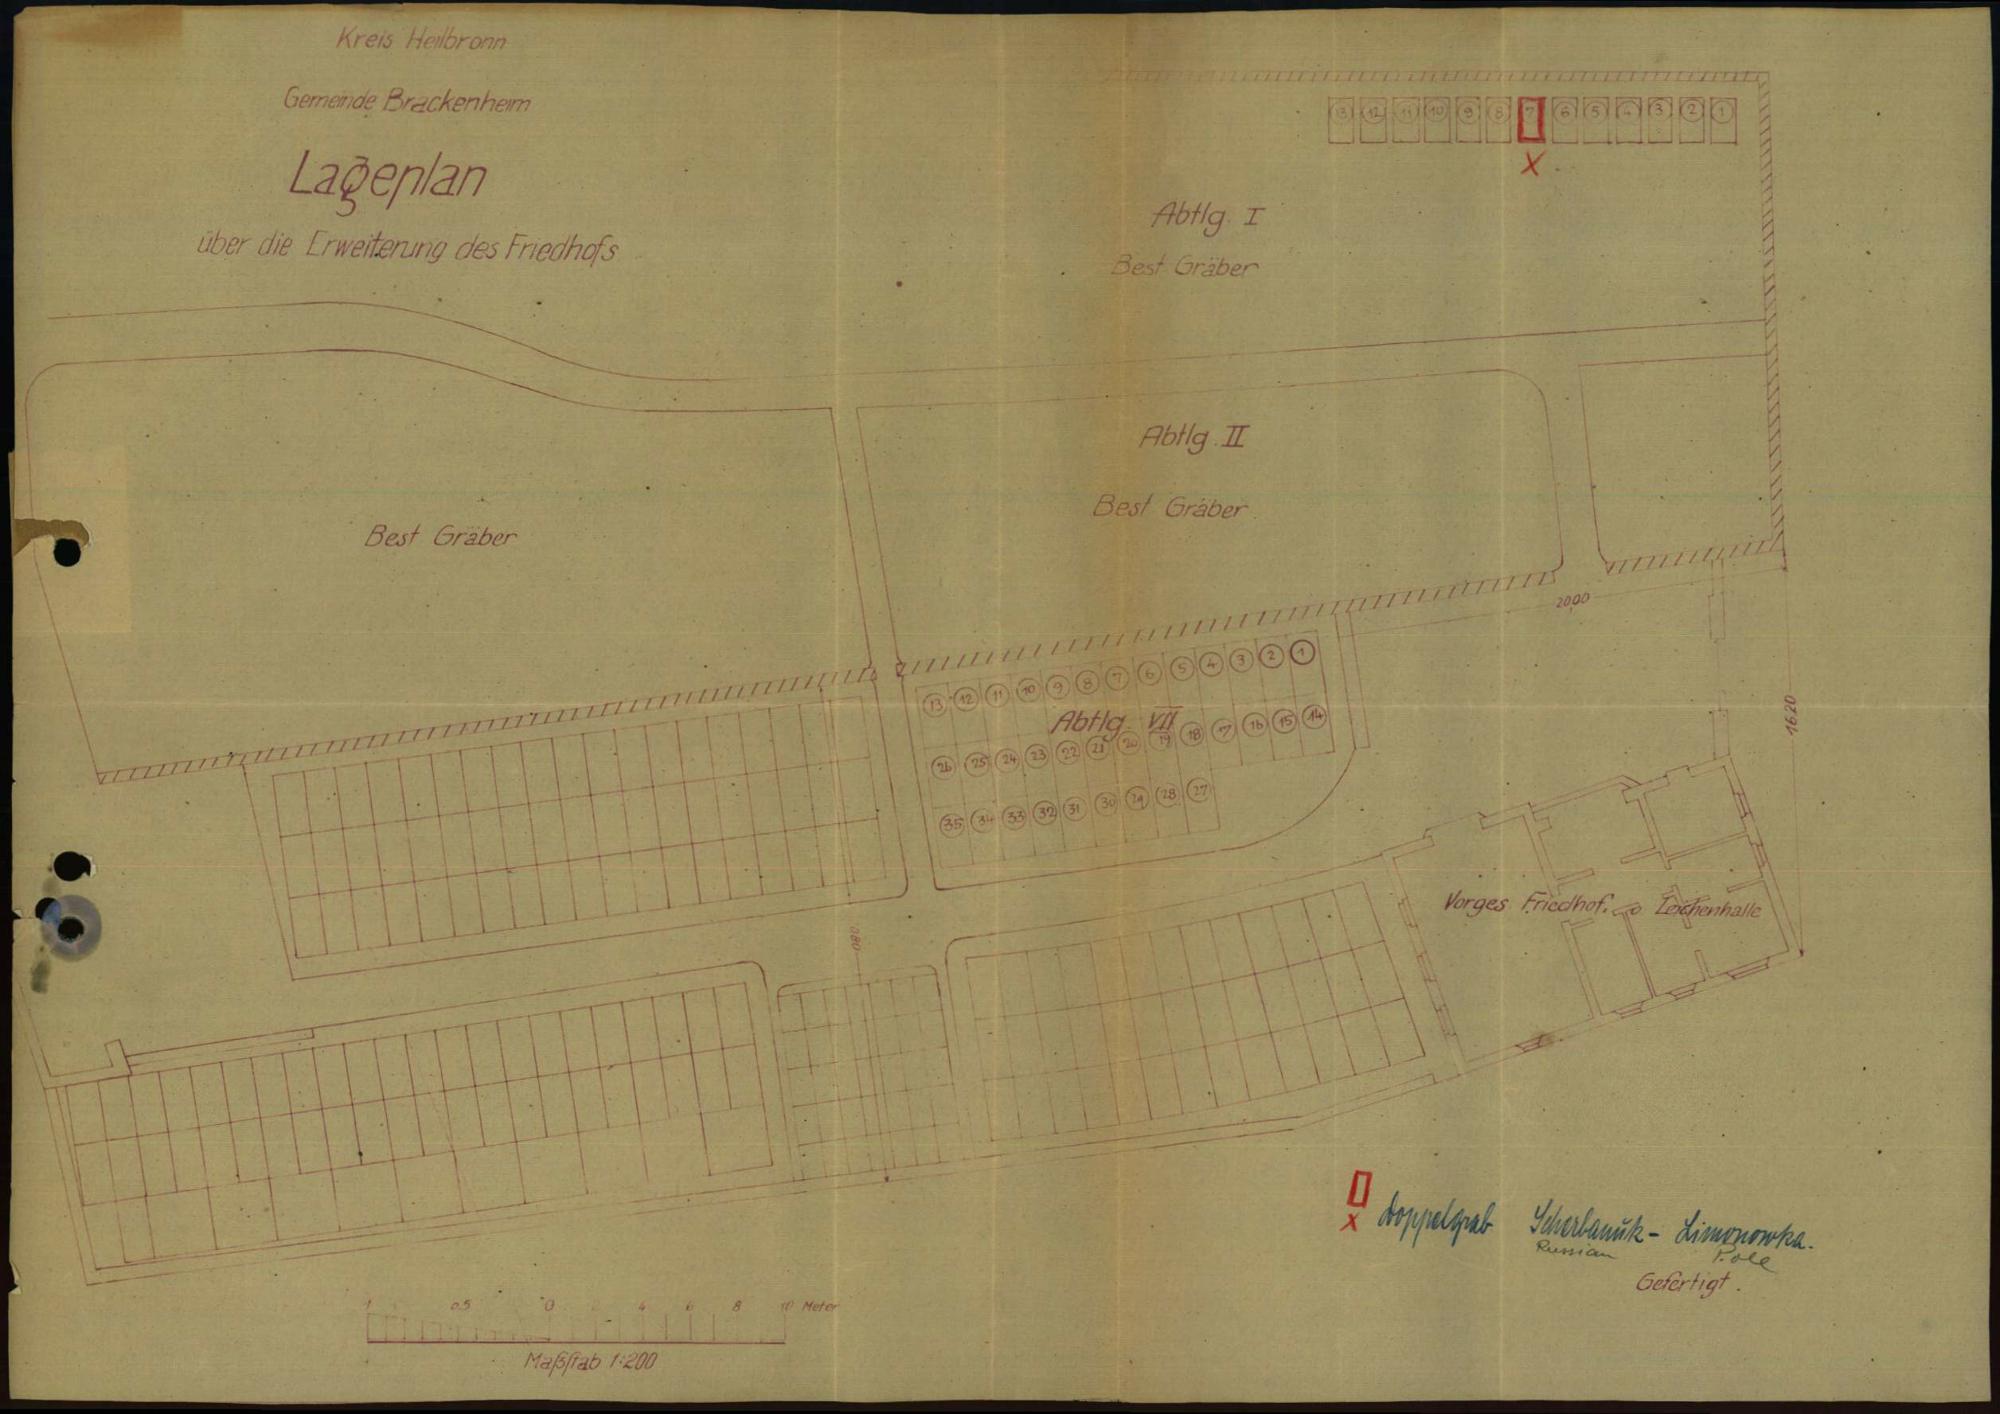 Kreis Heilbronn
Gemeinde Brackenheim
Lageplan
über die Erweiterung des Friedhofs
13 12 11 10 9 8 7 6 5 4 3 2 1
X
Abtlg. I
Best Gräber
Abtlg. II
Best Gräber
Best Gräber
2000
1620
13 12 11 10 9 8 7 6 5 4 3 2 1
Abtlg. VII
26 25 24 23 22 21 20 19 18 17 16 15 14
35 34 33 32 31 30 29 28 27
Vorges Friedhof. Leichenhalle
080
X Doppelgrab Scherbanuk - Limonowka.
Russian Pole
Gefertigt.
1 0.5 0 2 4 6 8 10 Meter
Maßstab 1:200